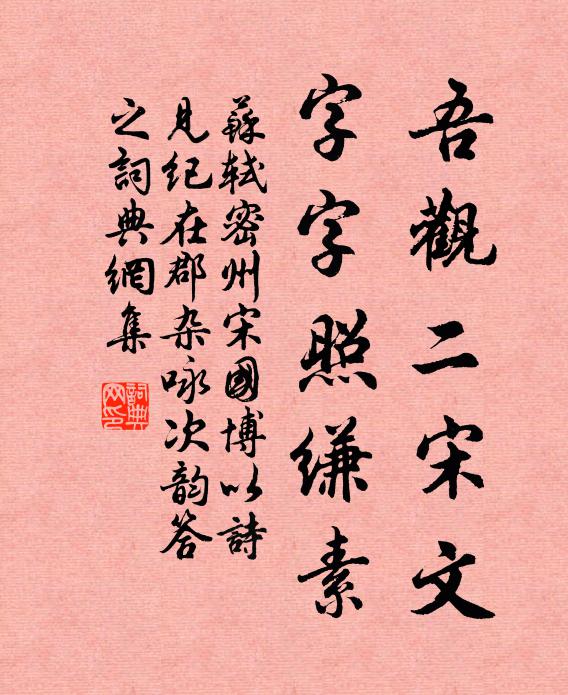 吾觀二宋文
字字照縑素
蘇軾密州宋國博以詩
見紀在郡杂咏次韵答
之詞典網集
詞典
网印